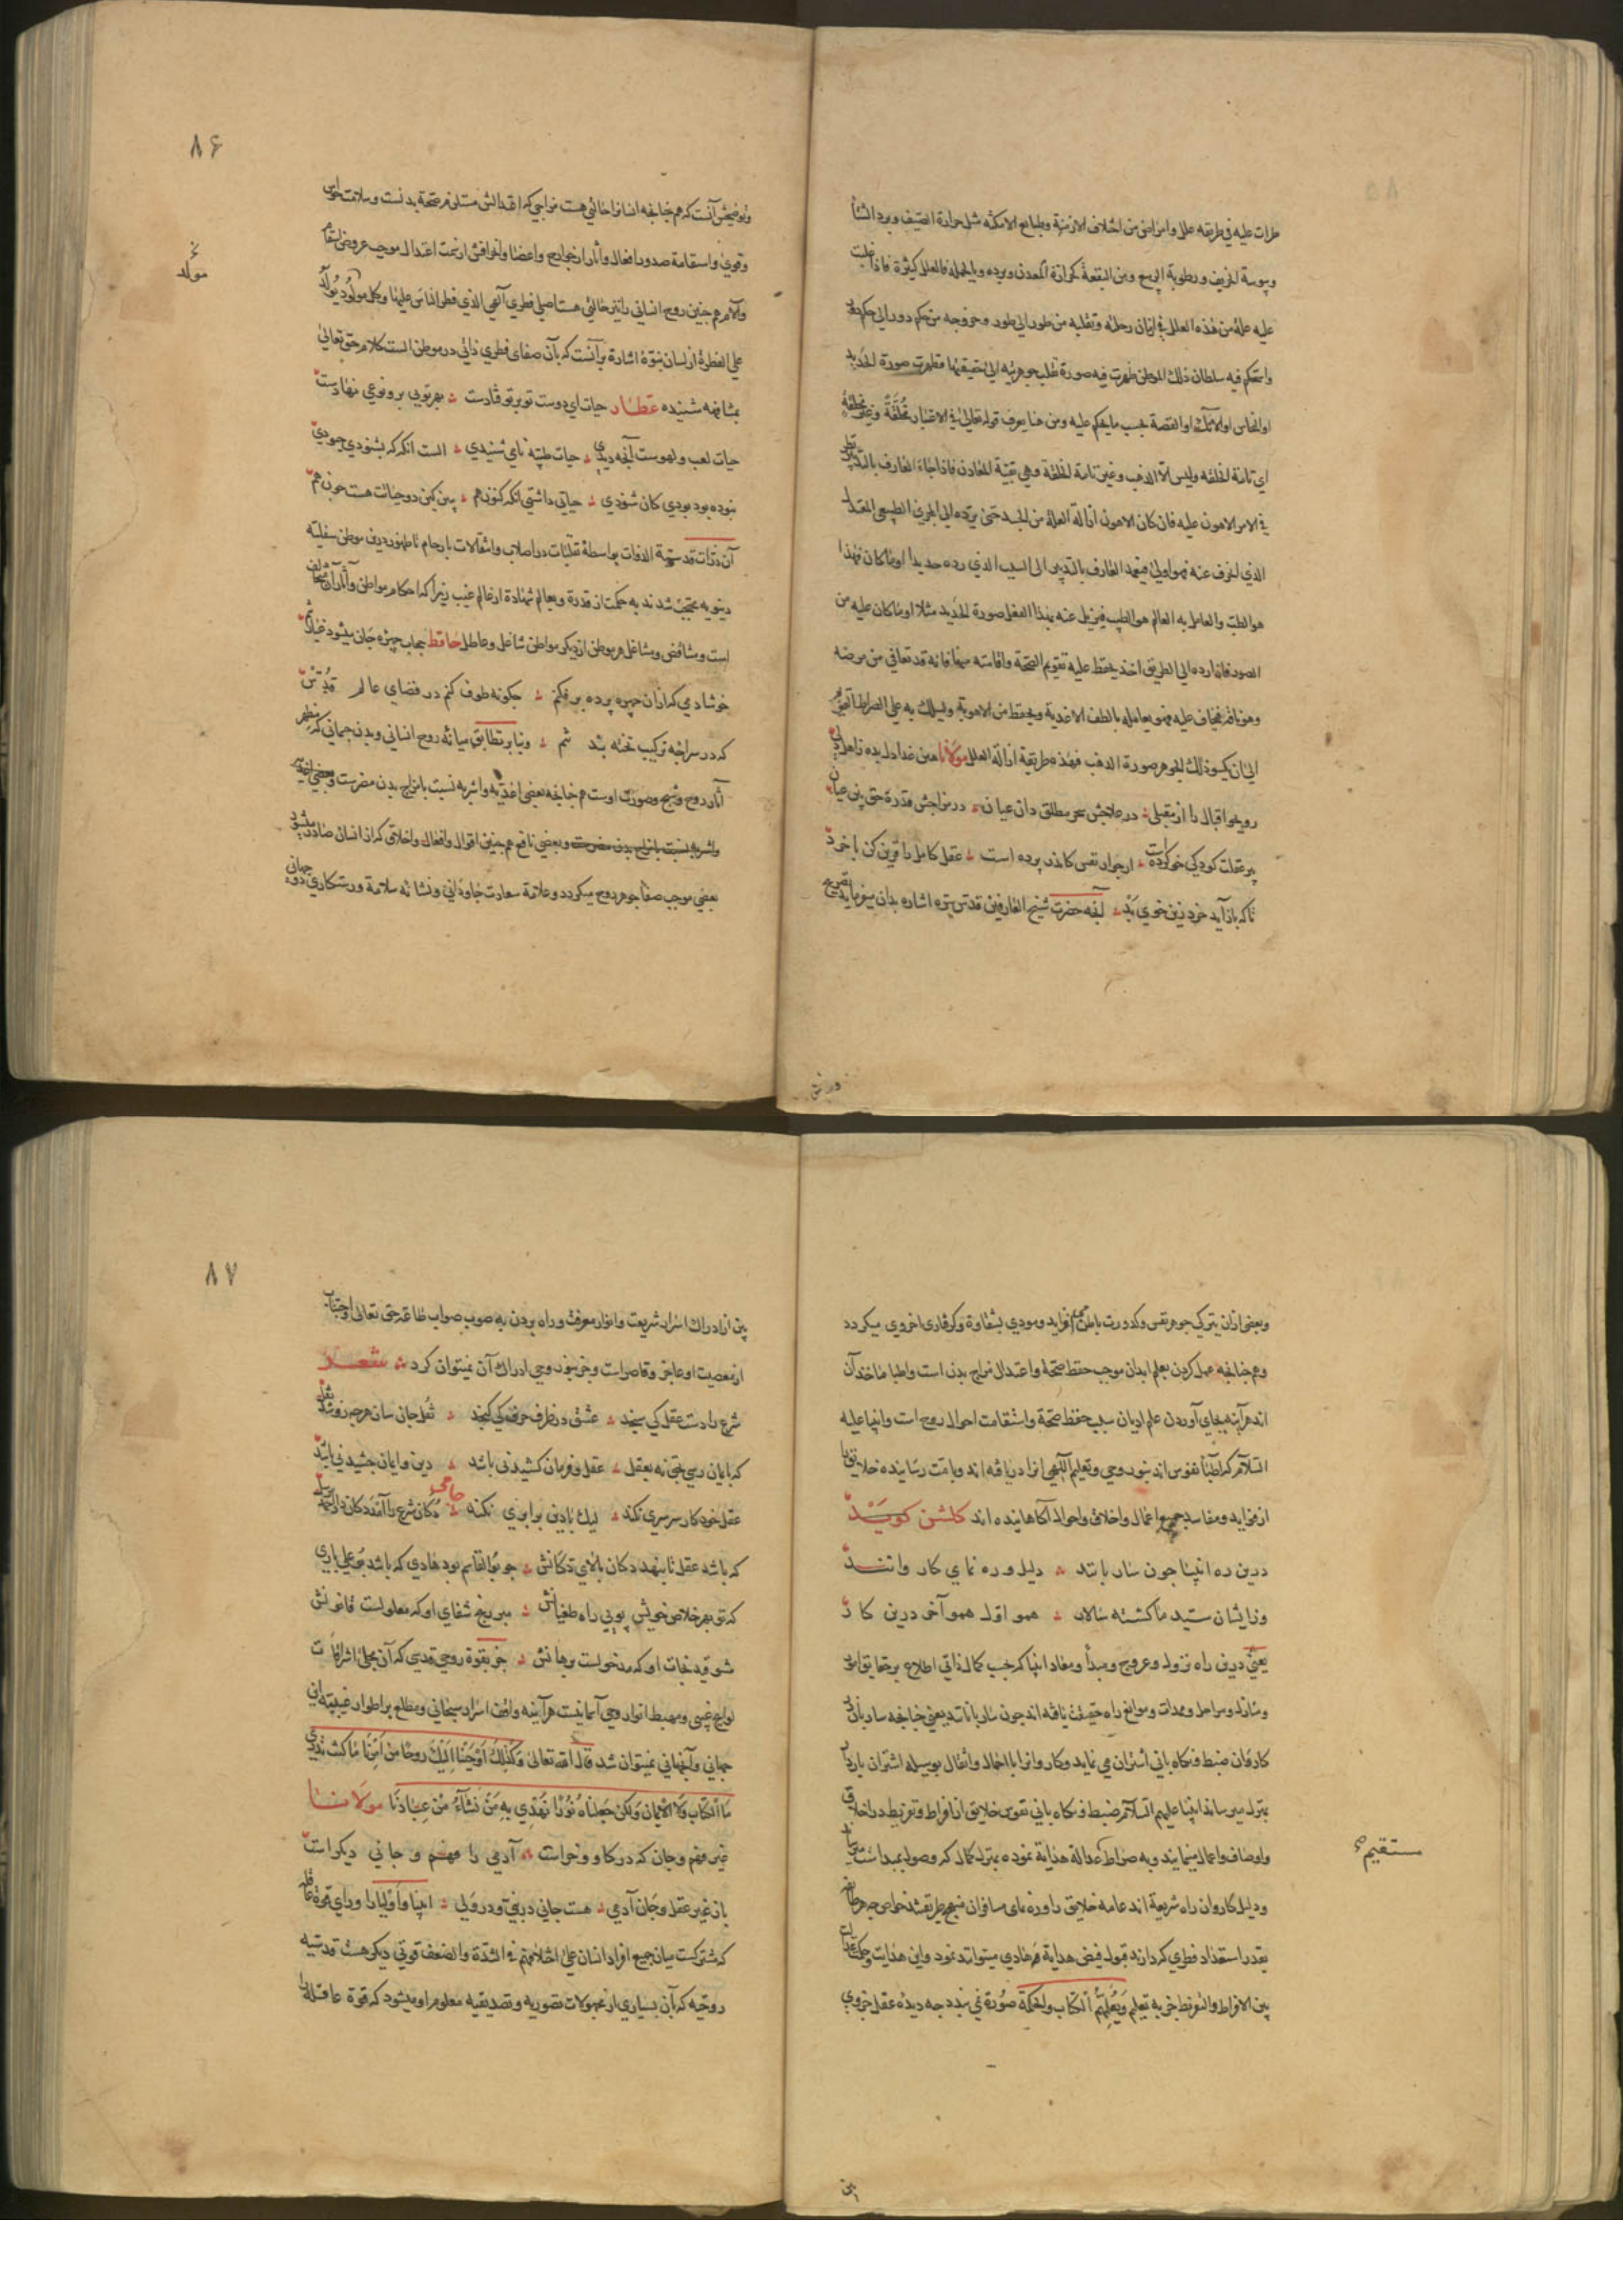 طرات علیه فی طریقه علل وامراض من اختلاف الازمنة وطبایع الامکنه مثل حرارة الصیف وبرد الشتا
ویبوسة الخریف ورطوبة الربیع ومن البقعة کحرارة المعدن وبرده وبالجمله فالعلل کثیرة فاذا غلبت
علیه علة من هذه العلل فی ازمان رحلته ونقلبه من طور الی طور وخروجه من حکم دور الی حکم دور
واستحکم فیه سلطان ذلک الموطن ظهرت فیه صورة نقلت جوهریته الی حقیقتها فظهرت صورة الحدید
او النحاس او الآنک او الفضة بحسب ما یحکم علیه ومن هنا یعرف قوله تعالی فی الاعتبار مُخَلَّقَةٍ وَغَیْرِ مخلقة
ای تامة الخلقه ولیس الا الذهب وغیر تامة الخلقة وهی بقیة المعادن فاذا جاء العارف بالتدبیر نظر
فی الامر الاهون علیه فان کان الاهون ازالة العلة من الجسد حتی یرده الی المجری الطبیعی المعتدل
الذی انحرف عنه فهو اولی فیعمد العارف بالتدبیر الی السبب الذی رده حدیدا او ما کان فهذا
هو الطب والعامل به العالم هو الطبیب فیزیل عنه بهذا الفعل صورة الحدید مثلا او ما کان علیه من
الصور فاذا رده الی الطریق اخذ یحفظ علیه تقویم الصحة واقامته فیها فانه قد تعافی من مرضه
وهو ناقه فیخاف علیه فهو یعامله بالطف الاغذیة ویحفظ من الاهویة ویسلک به علی الصراط القویم
الی ان یکسو ذلک الجوهر صورة الذهب فهذه طریقة ازالة العلل مولانا هین غذا دل بده از هم دلی
رو بجو اقبال را از مقبلی در علاجش سحر مطلق دان عیان در مزاجش قدرة حق بین عیان
بر عقلت کودکی خو کرده است از جوار نفس کاندر پرده است عقل کامل را قرین کن با خرد
تا که باز آید خرد زین خوی بد آنچه حضرت شیخ العارفین قدس سره اشاره بدان میفرماید تصریح
در تق
۸۶
وتوضیحش آنست که همچنانچه انسانرا حالتی هست مزاجی که اعتدالش مستلزم صحة بدنست وسلامت حواس
وقوی واستقامة صدور افعال وآثار از جوارح واعضا وانحرافش از سمت اعتدال موجب عروض اسقام
وآلام همچنین روح انسانی را نیز حالتی هست اصلی فطری آلهی الذی فطر الناس علیها وکل مولود یولد
خ مولد
علی الفطرة از لسان نبوة اشارة برآنست که بآن صفای فطری ذاتی در موطن الست کلام حق تعالی
بمشافهه شنیده عطار حیات ای دوست تو بر تو فتادست بهر توئی بر و نوعی نهادست
حیات لعب ولهوست آنچه دیدی حیات طیبه نامی شنیدی الست آنگه که بشنودی چه بودی
نبوده بود بودی کان شنودی حیاتی داشتی آنگه کنون هم ببین کین دو حیاتت هست چون هم
آن ذرات قدسیة الذوات بواسطة تقلبات در اصلاب وانتقالات بارحام تا ظهور درین موطن سفلیه
دنیویه محتجب شدند به حکمت از قدرة وبعالم شهادة از عالم غیب زیرا که احکام مواطن وآثار آن متخالف
است ومتناقض ومشاغل هر موطن از دیگر مواطن شاغل وعاطل حافظ حجاب چهره جان میشود غبار تنم
خوشا دمی که ازان چهره پرده برفکنم چگونه طوف کنم در فضای عالم قُدْس
که در سراچه ترکیب تخته بند تنم وبنا بر تطابق میانه روح انسانی وبدن جسمانی که مظهر
آثار روح وشبح وصورت اوست همچنانچه بعضی اغذیه واشربه نسبت بامزاج بدن مضرست وبعضی اغذیه
واشربه نسبت بامزاج بدن مضرست وبعضی نافع همچنین اقوال وافعال واخلاقی که از انسان صادر میشود
بعضی موجب صفا جوهر روح میگردد وعلامة سعادت جاودانی ونشانه سلامة ورستکاری دو جهانی
وبعضی ازان بترک جوهر نفس وکدورت باطن می افزاید ومودی بشقاوة وگرفتاری اخروی میگردد
وهمچنانچه عمل کردن بعلم ابدان موجب حفظ صحة واعتدال مزاج بدن است واطبا ماخذ آن
اند هرآینه بجای آوردن علم ادیان سبب حفظ صحة واستقامت احوال روح است وانبیا علیه
السلام که اطباء نفوس اند بنور وحی وتعلیم آلهی آنرا دریافته اند وبامت رسانیده خلایق را
از فواید ومفاسد جمیع اعمال واخلاق واحوال آگاهانیده اند گلشن گوید
درین ره انبیا چون ساربانند دلیل وره نمای کاروانند
وزایشان سید ما گشته سالار همو اول همو آخر درین کار
یعنی درین راه نزول وعروج ومبدأ ومعاد انبیا که حسب کمال ذاتی اطلاع بر حقایق امور
ومنازل ومراحل وممدات وموانع راه حقیقت یافته اند چون ساربانانند یعنی چنانچه ساربان در
کاروان ضبط ونگاه بانی اشتران می نماید وکاروانرا با احمال واثقال بوسیله اشتران باردار
بمنزل میرساند انبیا علیهم السلام ضبط ونگاه بانی نفوس خلایق از افراط وتفریط در اخلاق
واوصاف واعمال مینمایند وبه صراط عدالة هدایة نموده بمنزل کمال که وصول بمبداست میرسانند
مستقیم
ودلیل کاروان راه شریعة اند عامه خلایق را وره نمای مسافران منهج طریقتند خواص چه هر طایفه
بقدر استعداد فطری که دارند قبول فیض هدایة هر هادی میتوانند نمود واین هدایت وحکمت عدالت
بین الافراط والتفریط جز به تعلیم وَیُعَلِّمُهُمُ الْکِتَابَ والحکمة صُوْرَة نمی بندد چه دیدهٔ عقل جزوی
بین
۸۷
بین از ادراک اسرار شریعت وانوار معرفت وراه بردن به صوب صواب طاعة حق تعالی واجتناب
از معصیت او عاجز وقاصر است وجز بنور وحی ادراک آن نمیتوان کرد شعر
شرع را دست عقل کی سنجد عشق در ظرف حرف کی گنجد
که بایمان رسی بحق نه بعقل عقل وفرمان کشیدنی باشد دین وایمان چشیدنی باشد
عقل خود کار سرسری نکند لیک با دین برابری نکند جامی دکان شرع را آمد
که باشد عقل نا بینهد دکان بالای دکانش چو بوالقاسم بود هادی که باشد بوعلی باری
که تو بهر خلاص خویش پویی راه طغیانش مبر رنج شفای او که معلولست قانونش
مشو قید نجات او که مدخولست برهانش جز بقوة روحی قدسی که آن مجلی اشراقات
لوایح غیبی ومهبط انوار وحی آسمانیست هرآینه واقف اسرار سبحانی ومطلع بر اطوار غیبیة این
جهانی وآنجهانی نمیتوان شد قال الله تعالی وَکَذٰلِکَ اَوْحَیْنَا اِلَیْکَ رُوحًا مِنْ اَمْرِنَا مَا کُنْتَ تَدْرِی
مَا الْکِتَابُ وَلَا الْاِیْمَانُ وَلٰکِنْ جَعَلْنَاهُ نُوْرًا نَهْدِی بِهِ مَنْ نَشَآءُ مِنْ عِبَادِنَا مولانا
غیر فهم وجان که در گاو وخر است آدمی را فهم و جانی دیگر است
باز غیر عقل وجان آدمی هست جانی در نبی و در ولی انبیا واولیا را ورای قوة عاقله
که مشترکست میان جمیع افراد انسان علی اختلافهم فی الشدة والضعف قوتی دیگر هست قدسیه
روحیه که بآن بسیاری از مجهولات تصوریه وتصدیقیه معلوم او میشود که قوة عاقله را